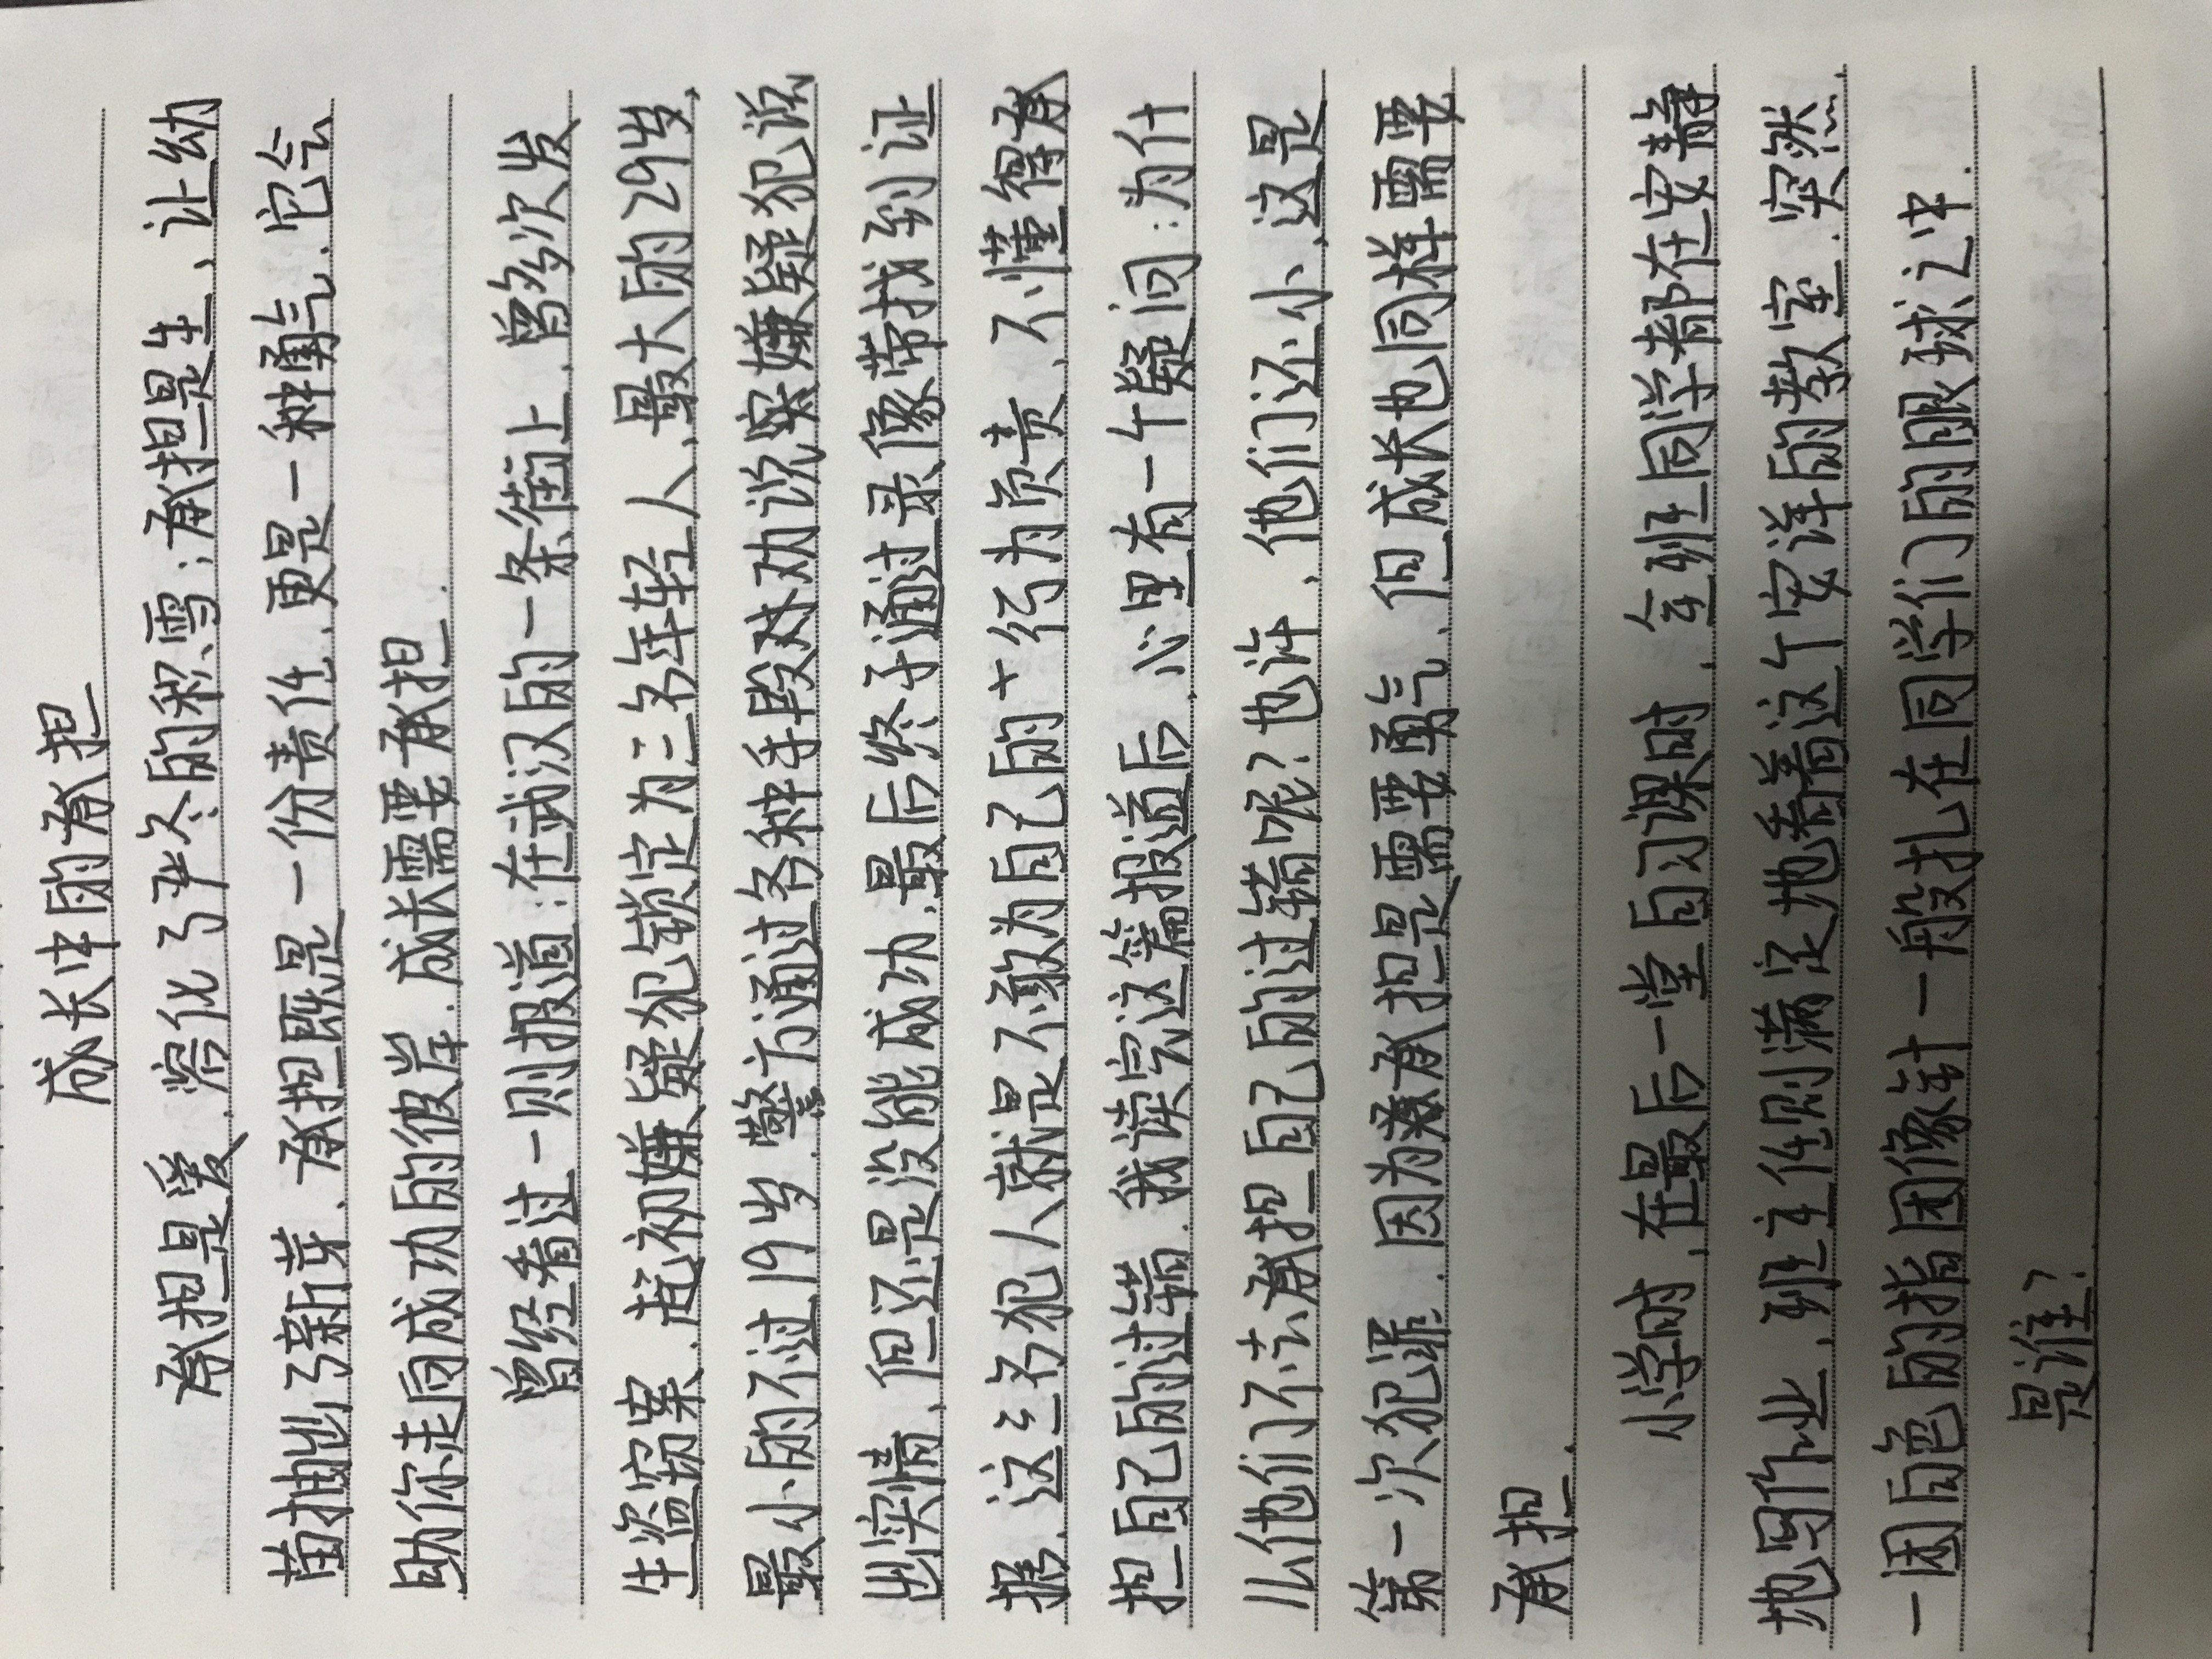 成长中的承担
承担是爱,溶化了严冬的积雪;承担是生,让幼
苗抽出了新芽,承担既是一份责任,更是一种勇气,它会
助你走向成功的彼岸.成长需要承担.
曾经看过一则报道:在武汉的一条街上,曾多次发
生盗窃案,起初嫌疑犯锁定为三名年轻人,最大的29岁,
最小的不过19岁.警方通过各种手段对劝说嫌疑犯说
出实情,但还是没能成功.最后终于通过录像带找到证
据,这三名犯人就是不敢为自己的行为负责,不懂得承
担自己的过错.我读完这篇报道后,心里有一个疑问:为什
么他们不去承担自己的过错呢?也许,他们还小,这是
第一次犯罪.因为承担是需要勇气,但成长也同样需要
承担.
小学时,在最后一堂自习课时,全班同学都在安静
地写作业,班主任则满足地看着这个安详的教室.突然
一团白色的指团像针一般扎在同学们的眼球之中.
是谁?